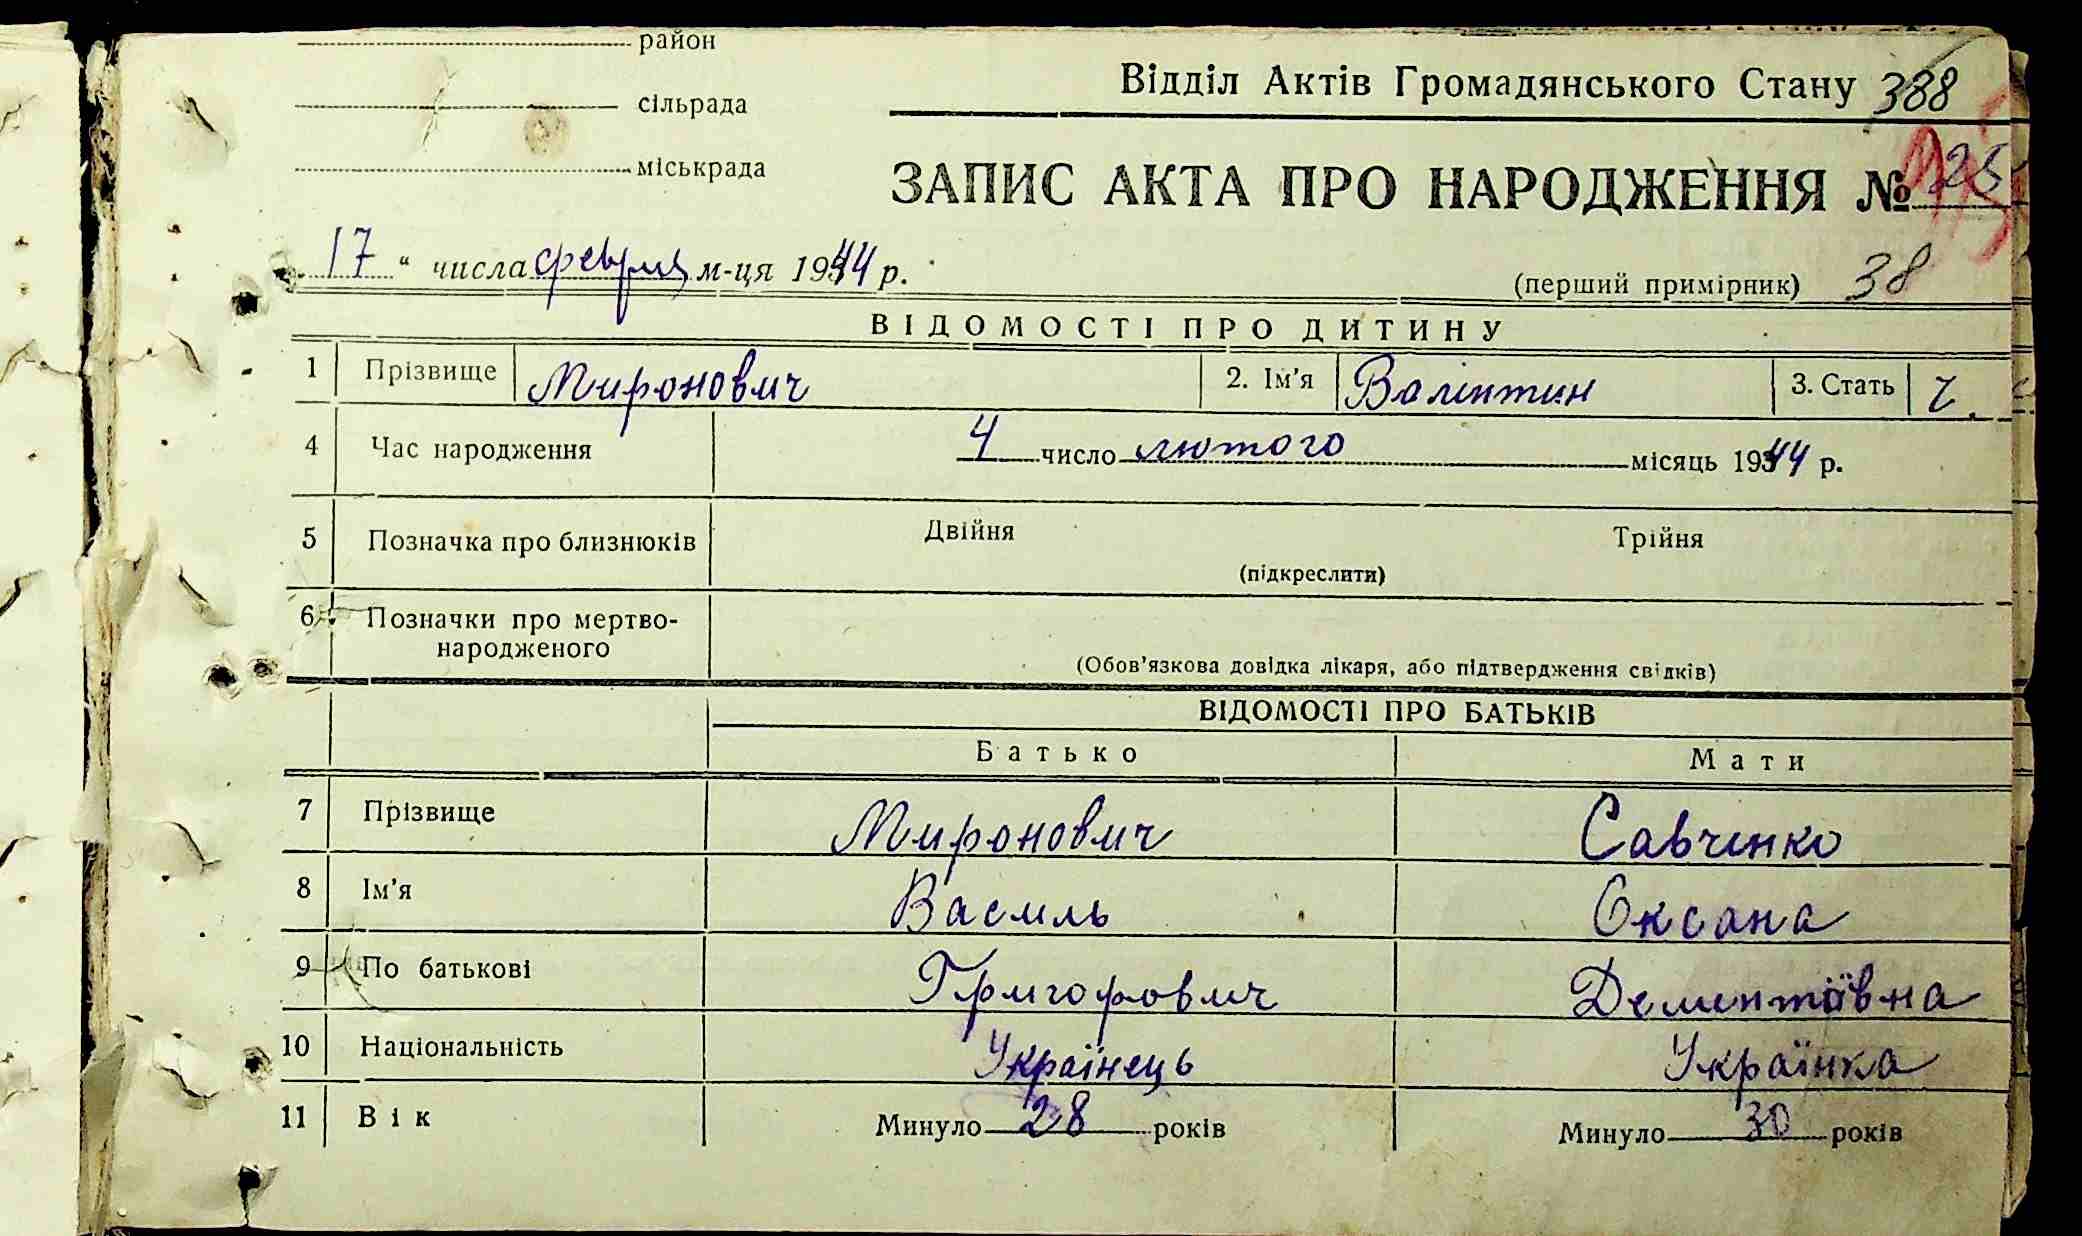 район
Відділ Актів Громадянського Стану 388
сільрада
міськрада
ЗАПИС АКТА ПРО НАРОДЖЕННЯ № 25
17 " числа февраля м-ця 1944 р.
(перший примірник) 38
ВІДОМОСТІ ПРО ДИТИНУ
1 Прізвище Миронович 2. Ім'я Валентин 3. Стать ч.
4 Час народження 4 число лютого місяць 1944 р.
5 Позначка про близнюків Двійня Трійня
(підкреслити)
6 Позначки про мертво-
народженого
(Обов'язкова довідка лікаря, або підтвердження свідків)
ВІДОМОСТІ ПРО БАТЬКІВ
Батько Мати
7 Прізвище Миронович Савченко
8 Ім'я Василь Оксана
9 По батькові Григорович Дементіївна
10 Національність Українець Українка
11 Вік Минуло 28 років Минуло 30 років